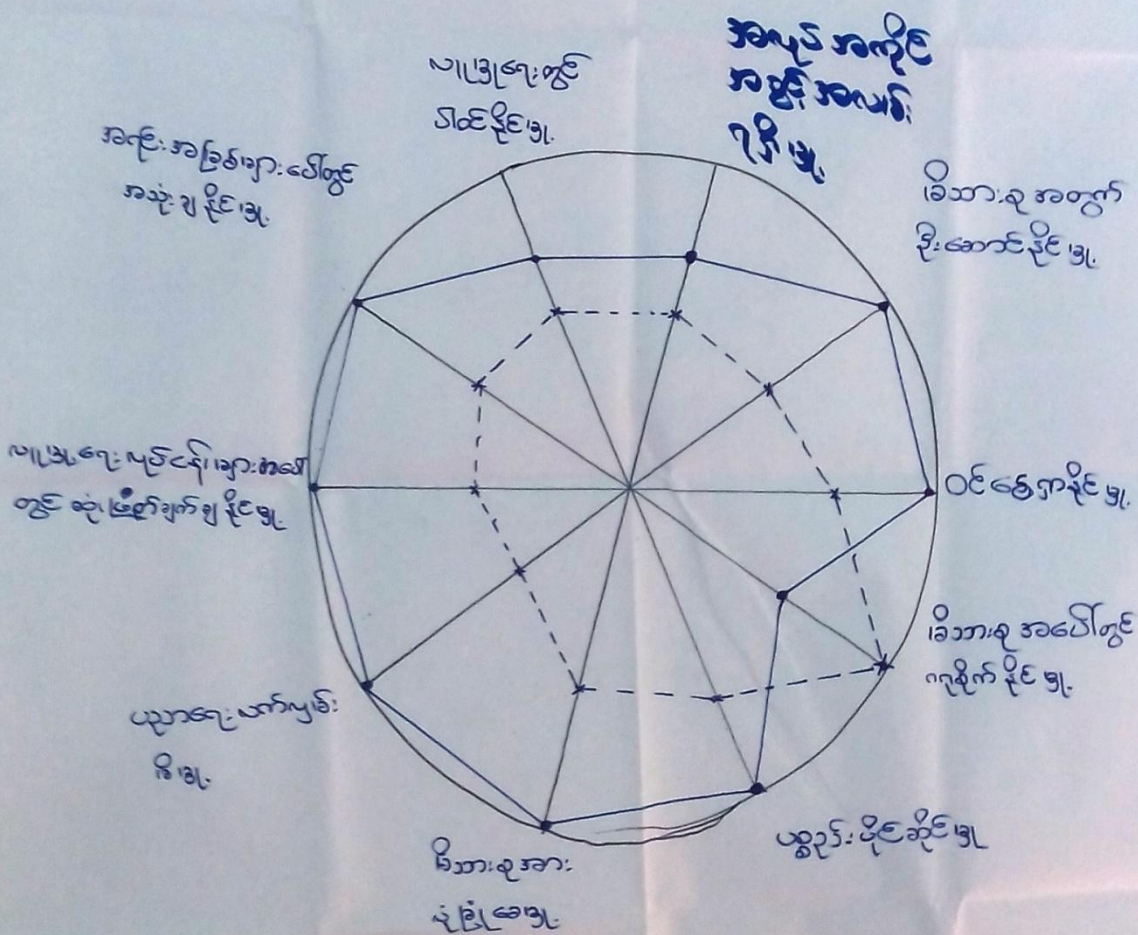 အလုပ် အကိုင်
အခွင့် အလမ်း
ရရှိမှု.
မိသားစု အတွက်
ဦးဆောင်နိုင်မှု.
ဝင်ငွေရှာနိုင်မှု.
မိသားစု အပေါ်တွင်
ဂရုစိုက်နိုင်မှု.
ပစ္စည်းပိုင်ဆိုင်မှု
မိသားစုအား
ပညာရေးလက်လှမ်း
မီမှု.
လူမှုရေးလုပ်ငန်းများအပေါ်
တွင် ဆုံးဖြတ်ချက်ချနိုင်မှု.
အရင်းအမြစ်များပေါ်တွင်
အသုံးချနိုင်မှု.
လူမှုရေးတွင်
ပါဝင်နိုင်မှု.